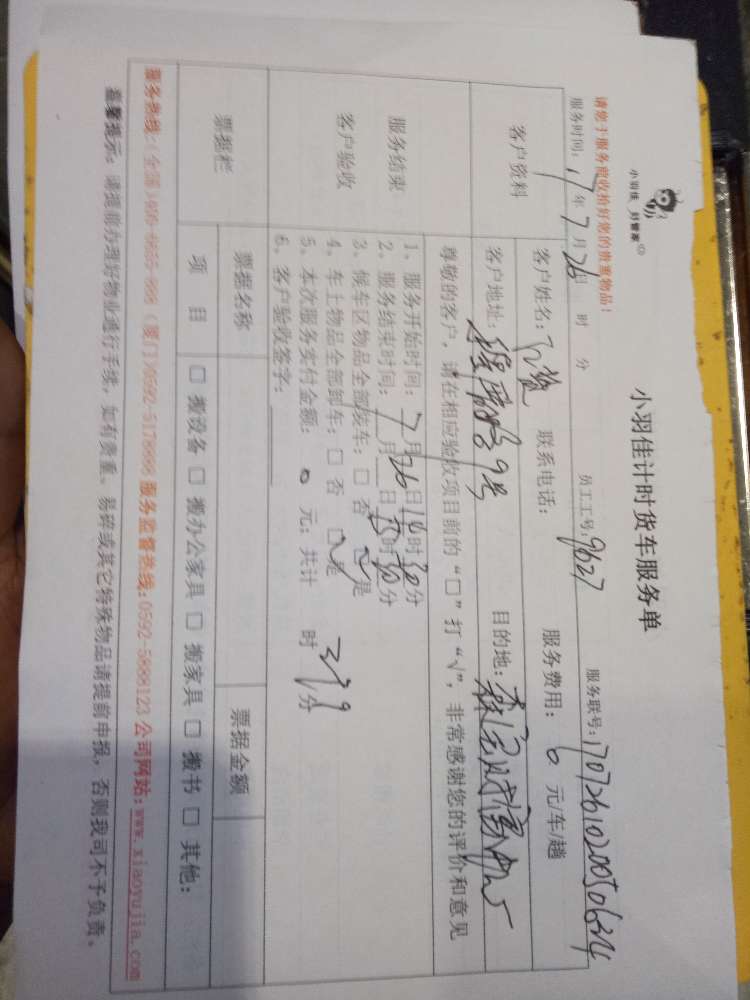 小羽佳 好管家
小羽佳计时货车服务单
请您于服务前收拾好您的贵重物品!
服务时间: 17年7月26日 时 分 员工工号: 9627 服务联号: 1707261020050634
客户资料
客户姓名: 联系电话: 服务费用: 0 元/车/趟
客户地址: 9号 目的地:
尊敬的客户,请在相应验收项目前的“□”打“√”,非常感谢您的评价和意见
服务结束
客户验收
1、服务开始时间: 7月26日10时30分
2、服务结束时间: 月 日 时 分
3、候车区物品全部装车: □ 否 ☑ 是
4、车上物品全部卸车: □ 否 ☑ 是
5、本次服务实付金额: 0 元; 共计 时 分
6、客户验收签字:
票据栏
票据名称 票据金额
项目 □ 搬设备 □ 搬办公家具 □ 搬家具 □ 搬书 □ 其他:
服务热线:(全国)400-6655-888 (厦门)0592-5178888 服务监督热线:0592-5888123 公司网站:www.xiaoyujia.com
温馨提示: 请提前办理好物业通行手续,如有贵重、易碎或其它特殊物品请提前申报,否则我司不予负责。